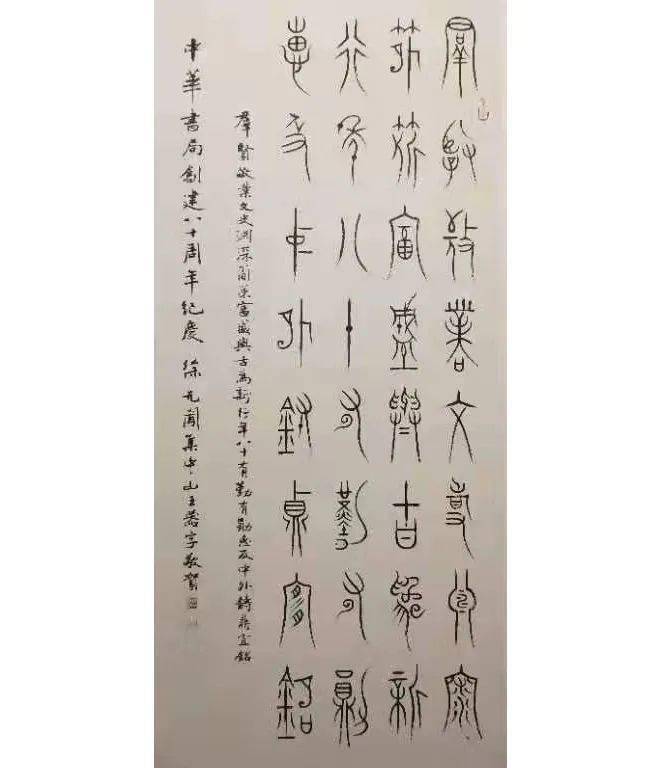 群賢敬業文史淵深
簡策富盛與古為新
行年八十有勤有勛
惠及中外鑄鼎宜銘
群賢敬業文史淵深簡策富盛與古為新行年八十有勤有勛惠及中外鑄鼎宜銘
中華書局創建八十周年紀慶 徐无聞集中山王器字敬賀